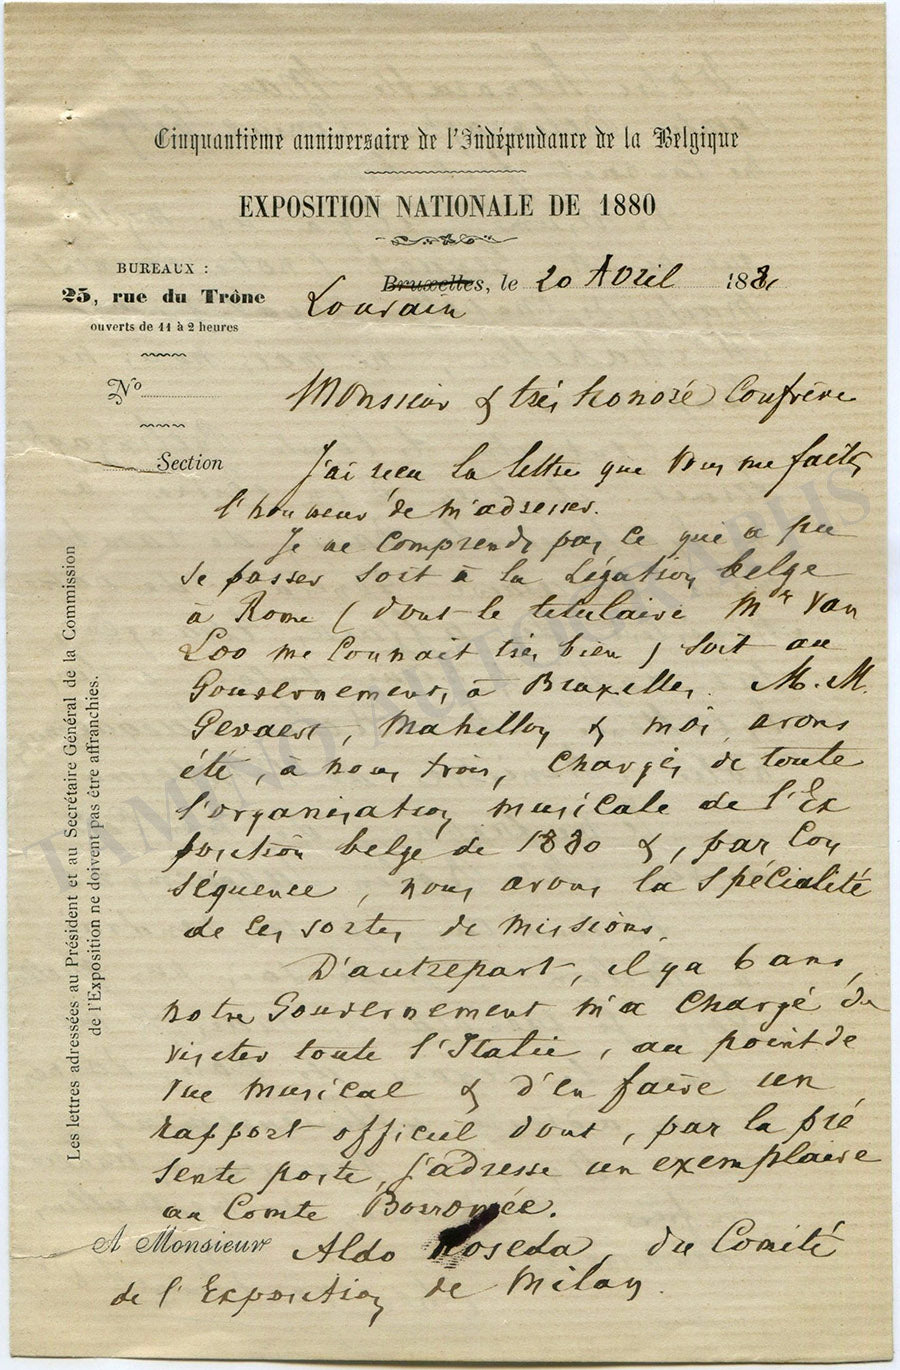 Cinquantième anniversaire de l'Indépendance de la Belgique
EXPOSITION NATIONALE DE 1880
BUREAUX :
25, rue du Trône
ouverts de 11 à 2 heures
Bruxelles, le 20 Avril 1881
Louvain
N°
Section
Monsieur & très honoré Confrère
J'ai reçu la lettre que vous me faites
l'honneur de m'adresser.
Je ne comprends pas ce qui a pu
se passer soit à la Légation belge
à Rome (dont le titulaire Mr Van
Loo me connait très bien) soit au
Gouvernement, à Bruxelles. M.M.
Gevaert, Mahillon & moi avons
été, à nous trois, chargés de toute
l'organisation musicale de l'Ex
position belge de 1880 &, par con
séquence, nous avons la spécialité
de ces sortes de missions.
D'autrepart, il y a 6 ans,
notre Gouvernement m'a chargé de
visiter toute l'Italie, au point de
vue musical & d'en faire un
rapport officiel dont, par la pré
sente poste, j'adresse un exemplaire
au Comte Borromée.
A Monsieur Aldo Noseda, du Comité
de l'Exposition de Milan.
Les lettres adressées au Président et au Secrétaire Général de la Commission
de l'Exposition ne doivent pas être affranchies.
TAMINO AUTOGRAPHS